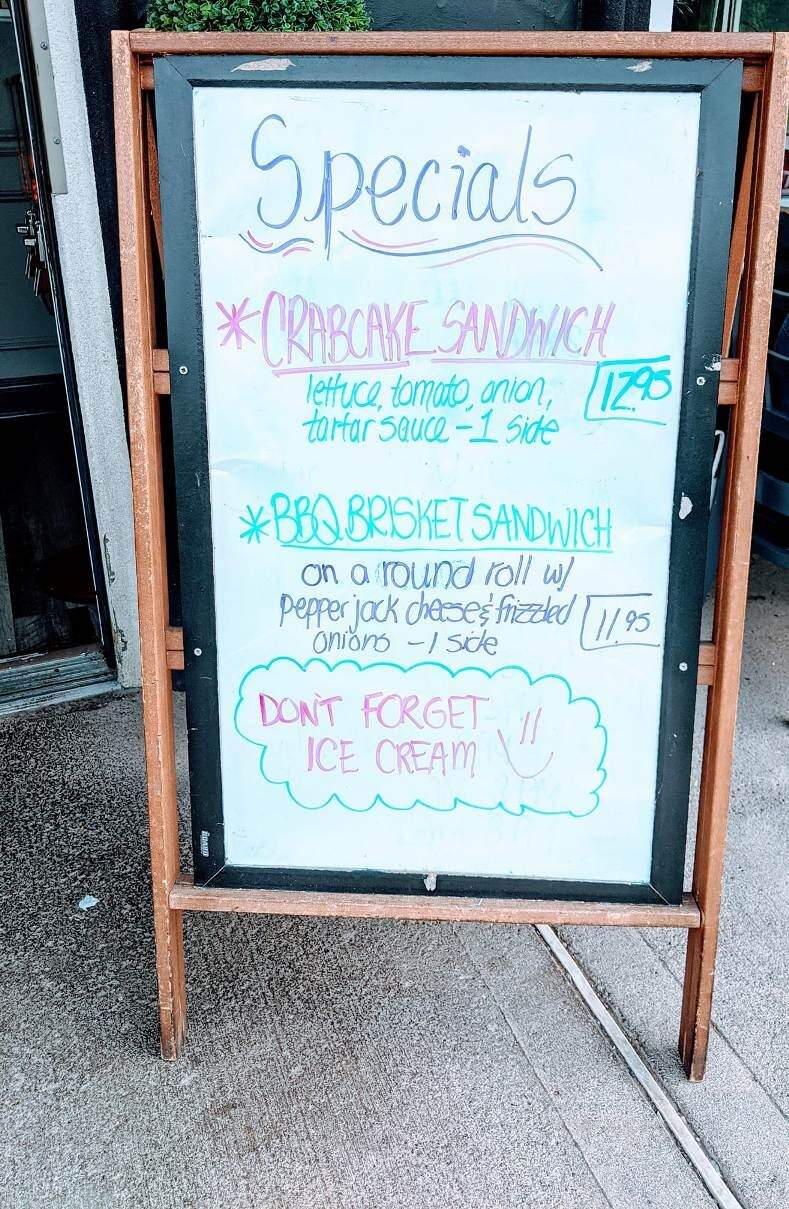 Specials
*CRABCAKE SANDWICH
lettuce, tomato, onion,
tartar sauce - 1 side
12.95
*BBQ BRISKET SANDWICH
on a round roll w/
pepper jack cheese & frizzled
onions - 1 side
11.95
DON'T FORGET
ICE CREAM